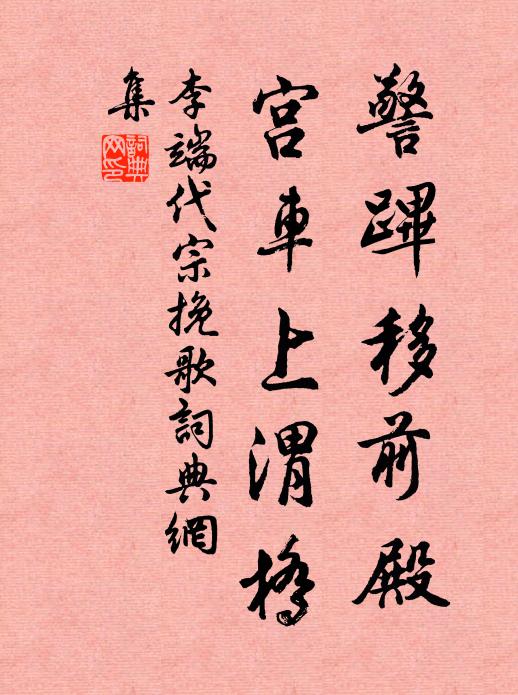 警蹕移前殿
宮車上渭橋
李端代宗挽歌詞典網
集
詞典
网印